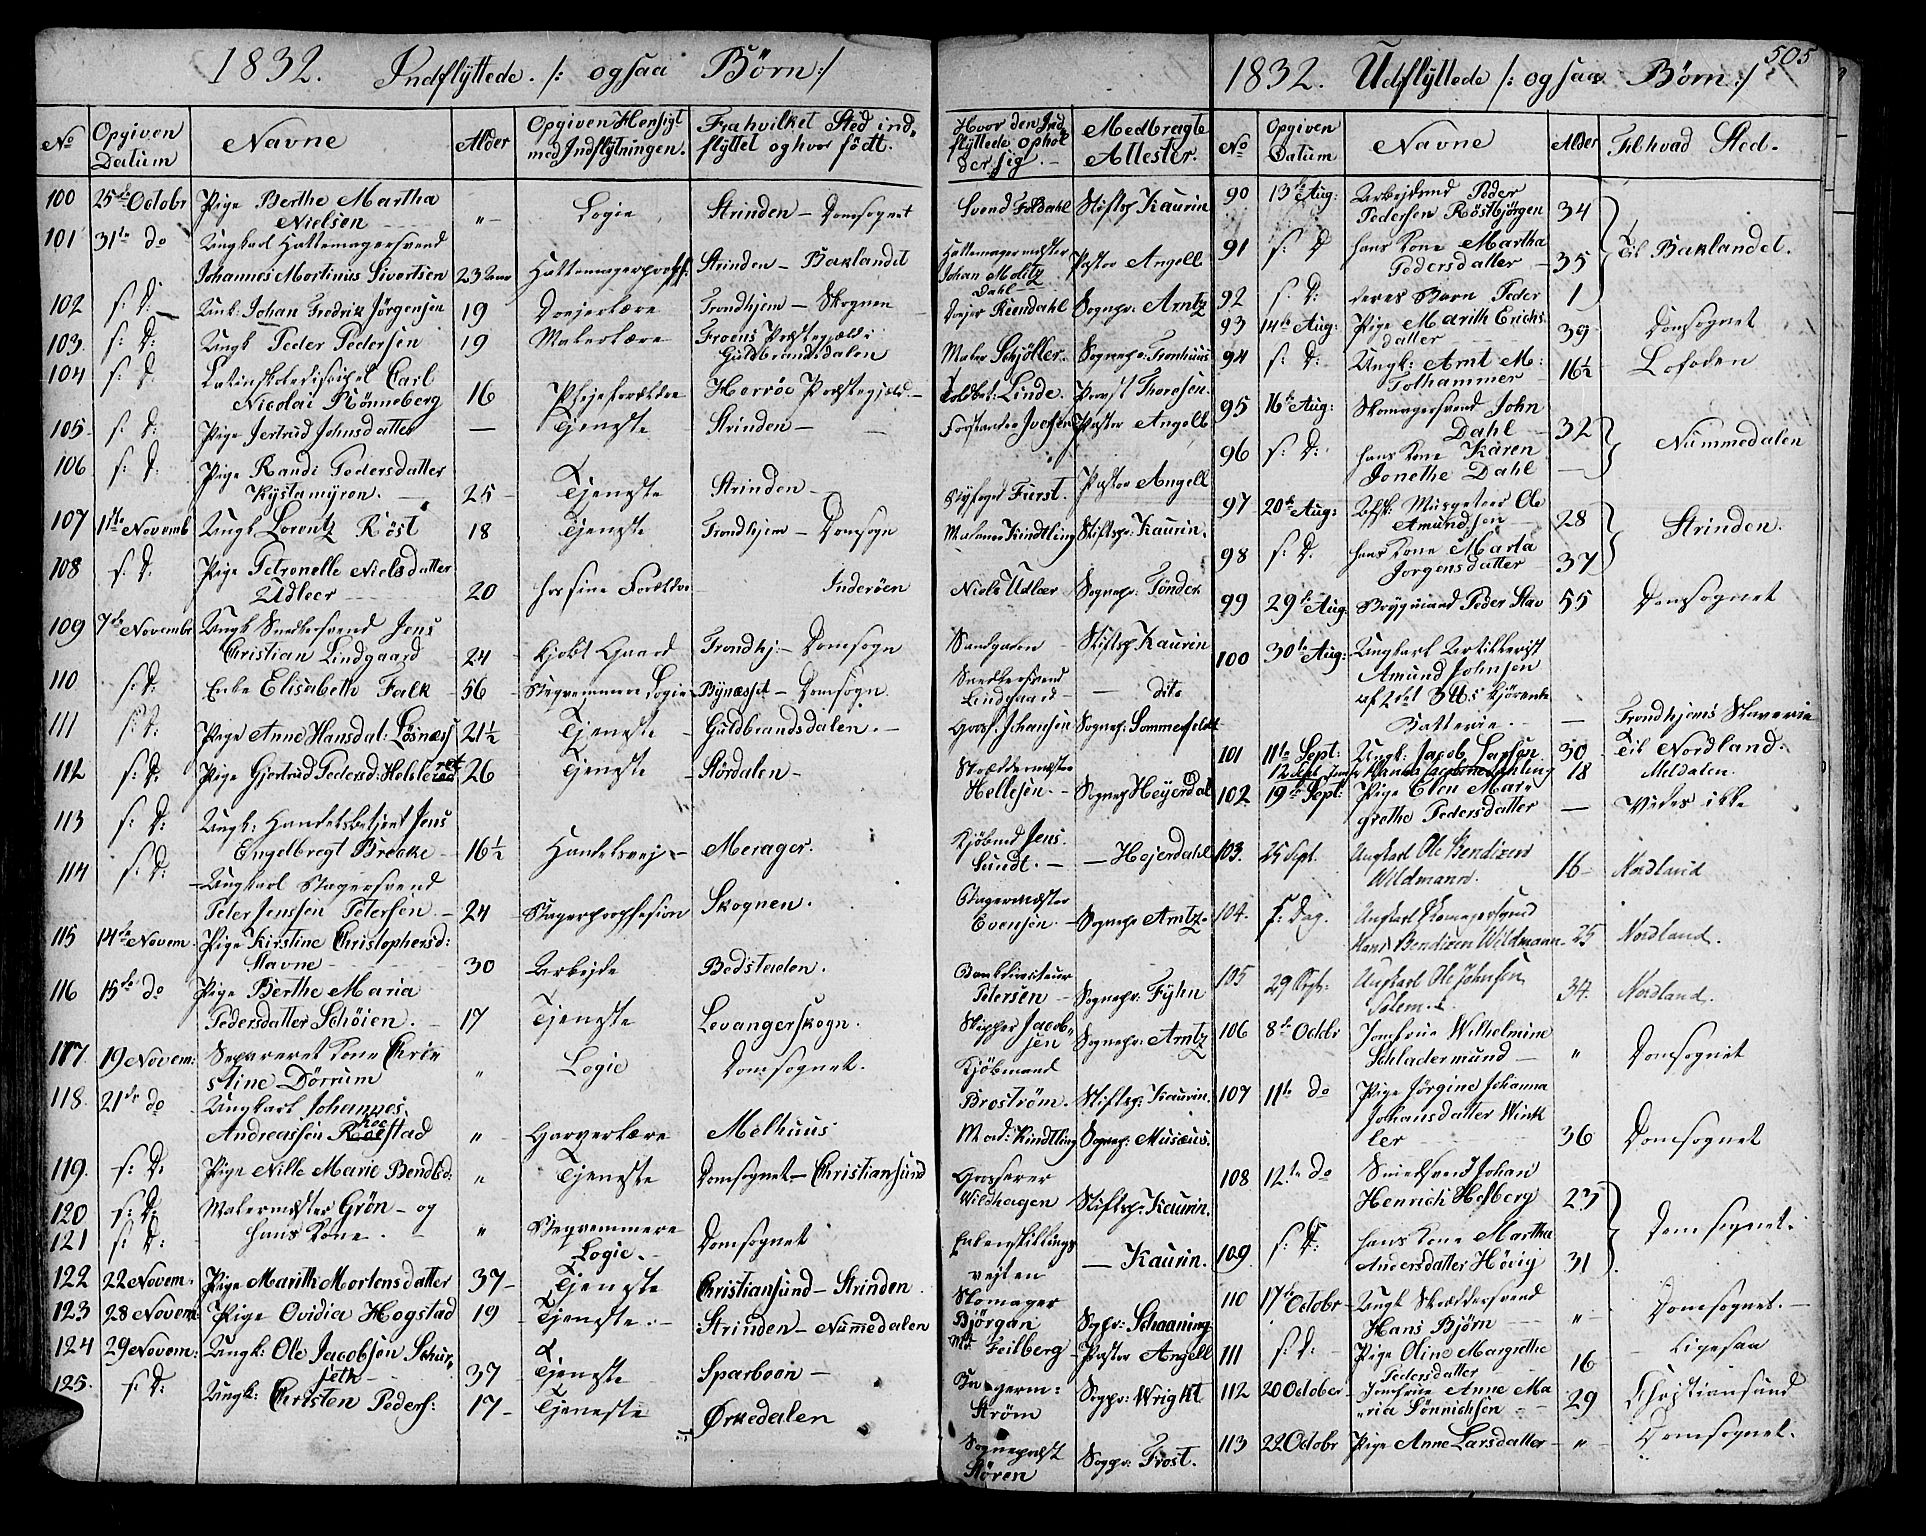 505
1832. Indflyttede. /: ogsaa Børn:/
No | Opgiven Datum | Navne | Alder | Opgiven Hensigt med Indflytningen. | Fra hvilket Sted indflyttet og hvor født. | Hvor den Indflyttede opholder sig. | Medbragte Attester.
100 | 25de Octobr | Pige Berthe Martha Nielsen | " | Logie | Strinden – Domsognet | Svend Foldahl | Stiftsp Kaurin
101 | 31te do | Ungkarl Hattemagersvend Johannes Mortinus Sivertsen | 23 Aar | Hattemagerproff: | Strinden – Baklandet | Hattemagermester Johan Moltz Dahl | Pastor Angell
102 | s: D: | Unk: Johan Fredrik Jørgensen | 19 | Drejerlære | Trondhjem – Skognen | Drejer Kiendahl | Sognepr: Arntz
103. | s: D: | Ungk Peder Pedersen | 19 | Malerlære | Froens Præstegjeld i Guldbrandsdalen | Maler Schjøller. | Sognepr: Tronhuus
104 | s: D: | Latinskoledisipel Carl Nicolai Rønneberg | 16 | Plejeforældre | Herrøe Præstegjeld. | Toldbet: Linde. | Provst Thoresen.
105 | s: D: | Pige Jertrud Johnsdatter | – | Tjeneste | Strinden – | Forstander Iversen | Pastor Angell
106 | s: D: | Pige Randi Pedersdatter Kystamyren. | 25 | Tjeneste | Strinden – | Byfoged Furst. | Pastor Angell
107 | 1te Novemb | Ungk Lorentz Røst | 18 | Tjeneste | Trondhjem – Domsogn | Madame Kindtling | Stiftspr: Kaurin.
108 | s: D: | Pige Petronelle Nielsdatter Udleer | 20 | hos sine Forældre | Inderøen | Niels Udlær | Sognepr: Tønder
109 | 7de Novembr | Ungk Snedkersvend Jens Christian Lindgaard | 24 | kjøbt Gaard | Trondhj: – Domsogn | Sandgaden | Stiftsp Kaurin
110 | s: D: | Enke Elisabeth Falk | 56 | Beqvemmere Logie | Bynæsset – Domsogn. | Snedkersvend Lindgaard | – dito
111 | s: D: | Pige Anne Hansdat: Løsnæss | 21½ | Tjeneste | Guldbrandsdalen. | Gross. Johansen | Sognep: Sommerfeldt
112 | s: D: | Pige Gjertrud Pedersd: | 26 | Tjeneste | Størdalen – | Skræddermester Hellesen | Sognep Heyerdal
113 | s: D: | Ungk: Handelsbetjent Jens Engelbregt Brecke | 16½ | Handelsvej – | Merager. | Kjøbmd Jens Lundt. | – Hejerdahl
114 | s: D: | Ungkarl Bagersvend Peter Jenssen Petersen. | 24 | Bagerproffesion | Skognen. | Bagermester Evensen | Sognepr Arntz
115 | 14de Novem. | Pige Kirstine Christophersd: Stavne | 30 | Arbejde | Bedstaden. | Bankdirecteur Petersen | Sognepr: Fyhn
116 | 15de do | Pige Berthe Maria Pedersdatter Schøien. | 17 | Tjeneste | Levangerskogn. | Skipper Jacobsen | Sognepr: Arntz
117. | 19 Novem: | Separeret Kone Christine Dørrum | " | Logie | Domsognet. | Kjøbmand Broström. | Stiftsp: Kaurin.
118. | 21de do | Ungkarl Johannes Andreassen Roestad | " | Garverlære | Melhuus | Mad: Kindtling | Sognep: Musæus.
119. | s: D: | Pige Nille Marie Bendtsd: | " | Tjeneste | Domsognet – Christiansund | Grosserer Wildhagen | Stiftsp: Kaurin.
120 | s: D: | Malermester Grøn – og
121 | s: D: | hans Kone. | " | Beqvemmere Logie. | Domsognet | Enkenskillings vejten | – Kaurin.
122 | 22 Novem: | Pige Marith Mortensdatter | 37 | Tjeneste | Christiansund – Strinden. | Skomager Bjørgan | Sogpr: Schaaning:
123 | 28 Novem: | Pige Ovidia Hogstad | 19 | Tjeneste. | Strinden – Nummedalen | Md: Feilberg | Pastor Angell
124 | 29 Novem: | Ungk: Ole Jacobsen Schurseth | 37 | Tjeneste | Sparboen | Strøm | Sogpr: Wright
125. | s: D: | Ungk: Christen Peders: | 17 | Tjeneste | Ørkedalen | Sognepræst Støren | Sogpr: Frost.
1832. Udflyttede /: ogsaa Børn:/
No | Opgiven Datum | Navne | Alder | Til hvad Sted.
90 | 13de Aug: | Arbejdsmd Peder Pedersen Røstbjørgen | 34
91 | s: D | hans Kone Martha Pedersdatter | 35 | Til Baklandet.
92 | s: D: | deres Barn Peder | 1
93 | 14de Aug: | Pige Marith Erichsdatter | 39 | Domsognet
94 | s: D: | Ungk: Arnt M: Tolhammer | 16½ | Lofoden
95 | 16de Aug: | Skomagersvend John Dahl | 32 | Nummedalen
96 | s: D: | hans Kone Karen Jonethe Dahl | –
97 | 20de Aug: | Afsk: Musqeteer Ole Amundsen | 28 | Strinden.
98 | s: D. | hans Kone Marta Jorgensdatter | 37
99 | 29de Aug: | Brygmand Peder Stav | 55 | Domsognet
100 | 30te Aug: | Ungkarl Artillerist Amund Johnsen af 2det 3 ℔s kjørende Batterie. | – | Trondhjems Slaverie
101 | 11te Sept: | Ungk: Jacob Larsen | 30 | Til Nordland:
12 | 18 | Meldalen.
102 | 19de Sept: | Pige Elen Margrethe Pedersdatter | – | Vides ikke
103. | 25 Sept. | Ungkarl Ole Bendixen Wildmann. | 16 | Nordland
104. | s: Dag. | Ungkarl Skomagersvend Hans Bendixen Wildmann | 25 | Nordland.
105 | 29 Sept: | Ungkarl Ole Johnsen Solem. | 34. | Nordland.
106 | 8de Octobr | Jomfrue Wilhelmine Schladermund | " | Domsognet
107 | 11te do | Pige Jørgine Johanna Johansdatter Winkler | 36 | Domsognet
108 | 12te do | Smedsvend Johan Henrich Hefberg | 25 | Domsognet.
109. | s: D: | hans Kone Martha Andersdatter Høvig | 31
110 | 17de Octobr | Ungk Skræddersvend Hans Bjørn | " | Domsognet.
111 | s: D: | Pige Oline Margrethe Pedersdatter | 16 | Ligesaa
112 | 20 October | Jomfrue Anne Maria Sønnichsen | 29 | Christiansund
113 | 22 Octobr | Pige Anne Larsdatter | " | Domsognet.